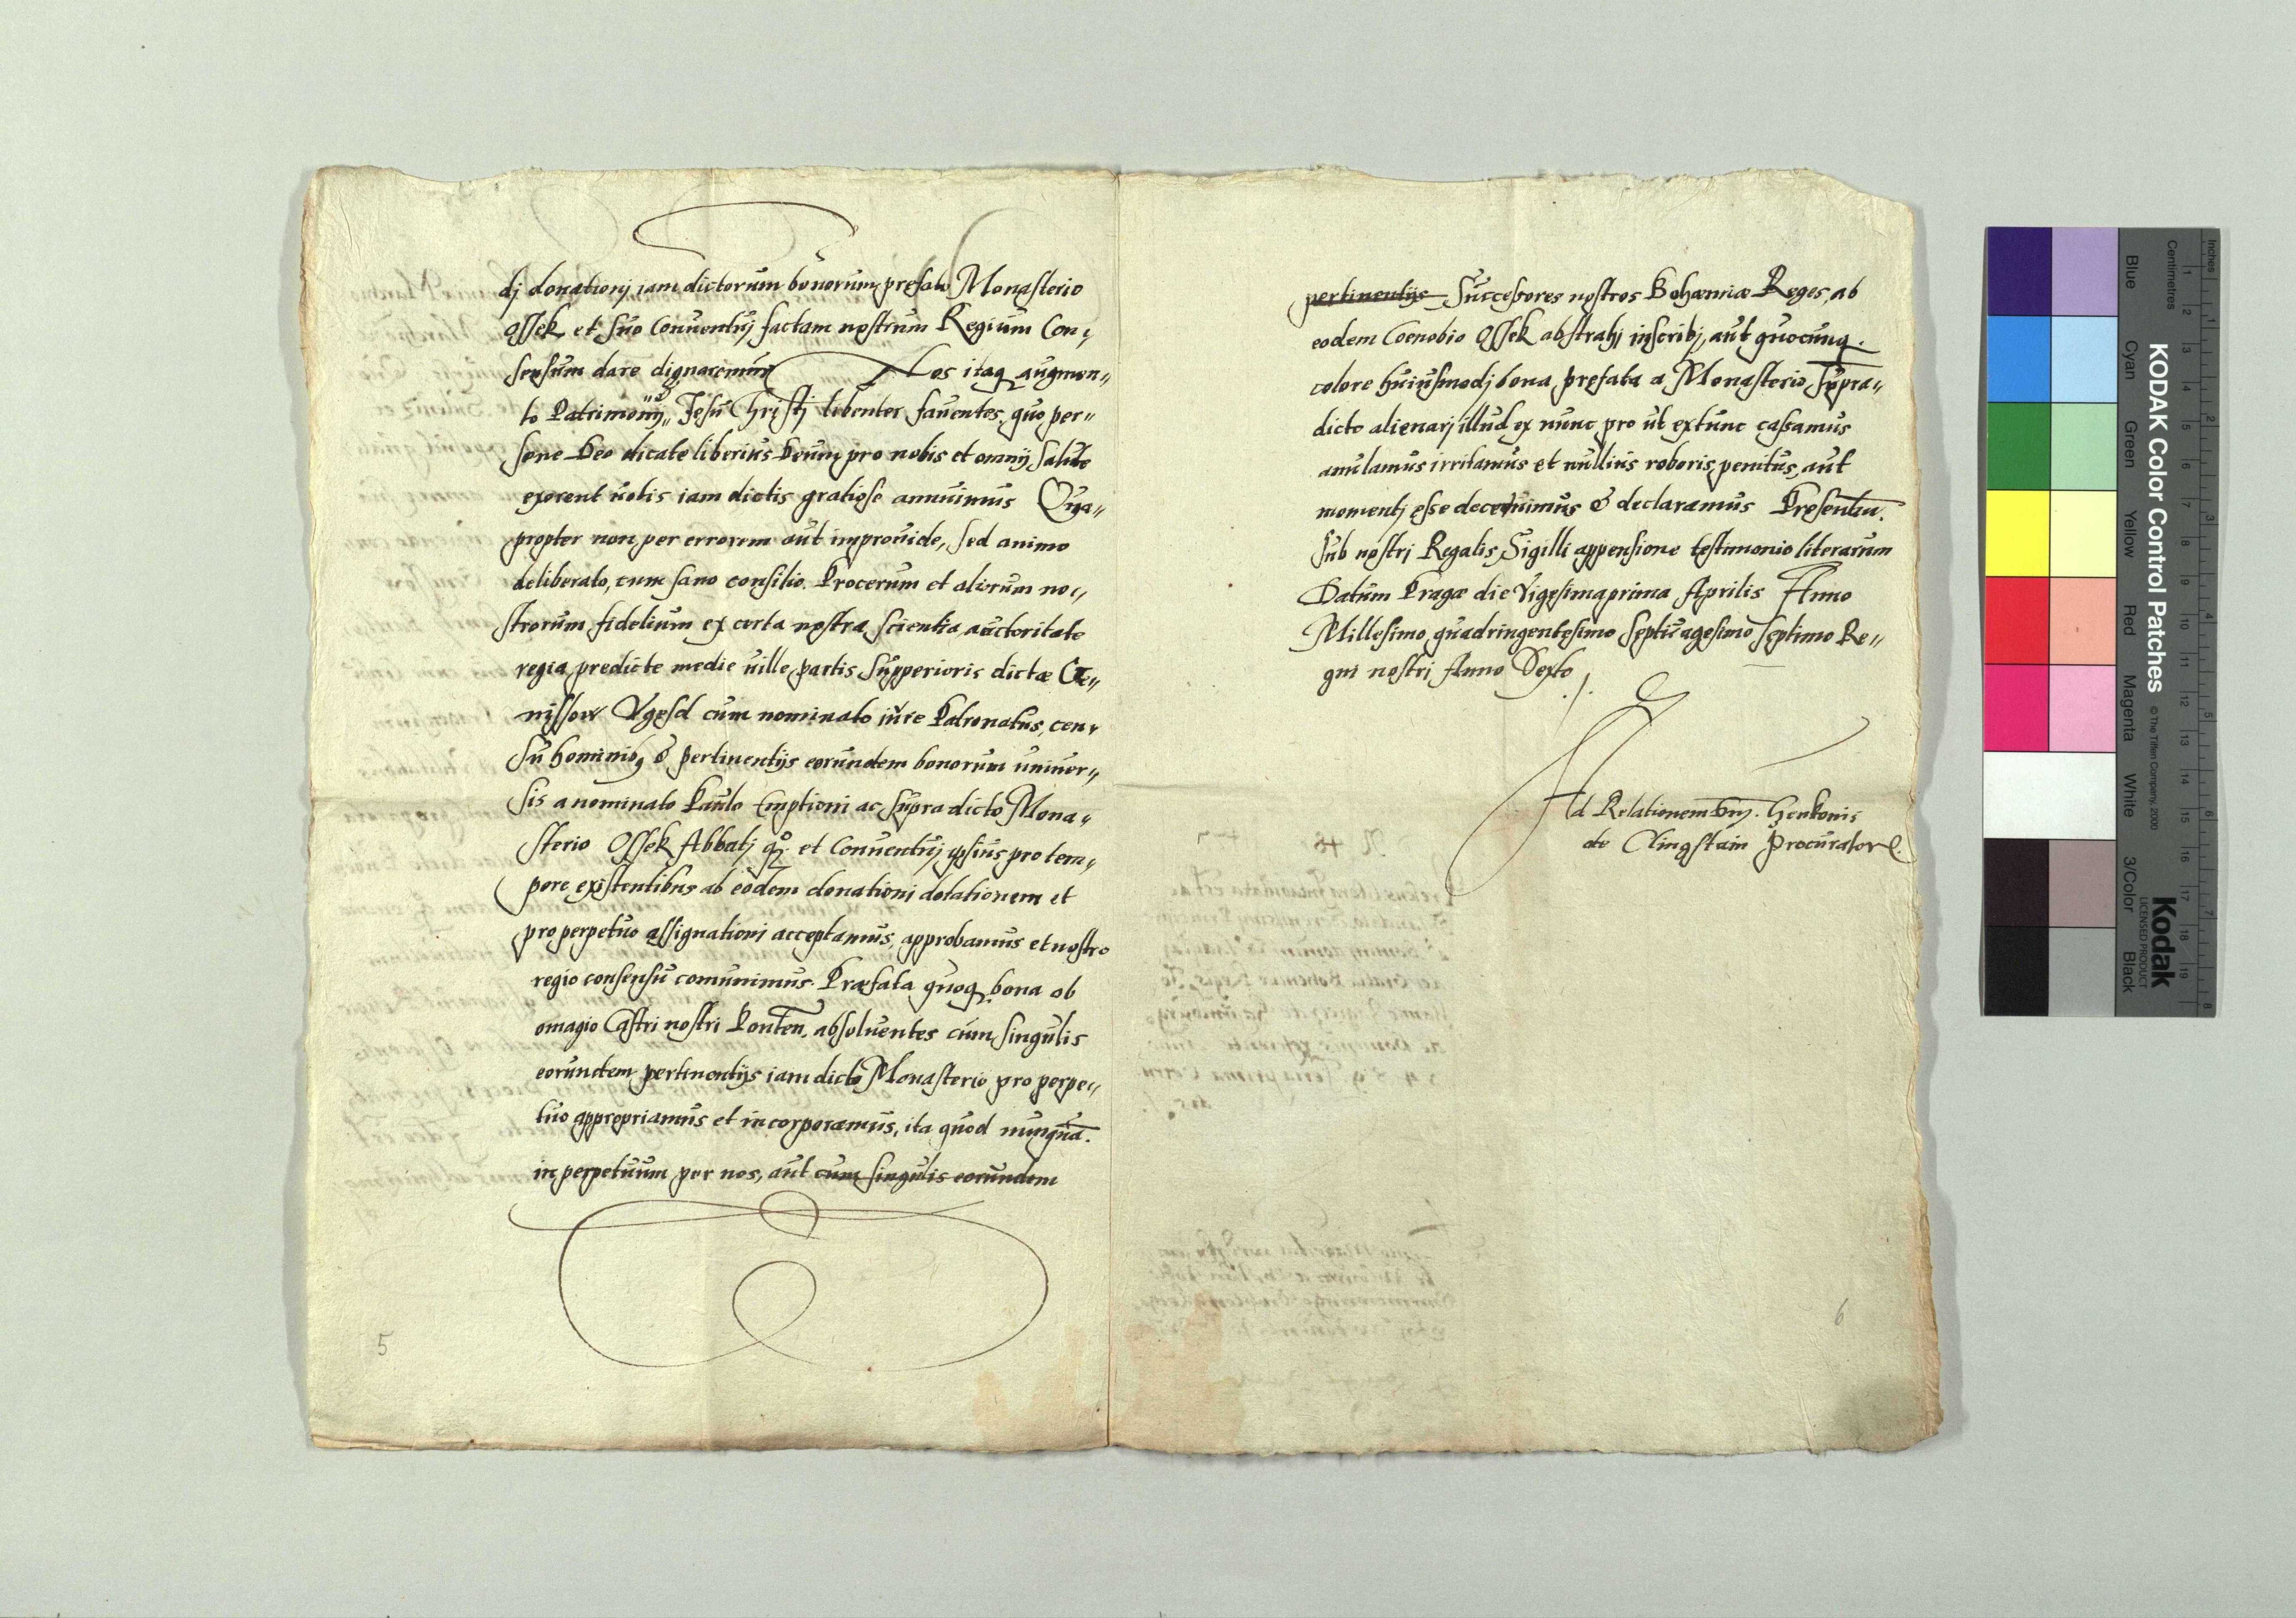 dj donationj iam dictorum bonorum prefato Monasterio
Ossek et suo Conuentuj factam nostrum Regium Con„
sensum dare dignaremur Nos itaq augmen„
to Patrimonij Jesu Christj libenter fauentes, quo per„
sone Deo dicate liberius Deum pro nobis et omnij salute
exorent uotis iam dictis gratiose annuimus Qua„
propter non per errorem aut improuide, sed animo
deliberato, cum sano consilio. Procerum et aliorum no„
strorum fidelium ex certa nostra scientia auctoritate
regia predicte medie uille partis supperioris dictæ
Vgesd cum nominato iure Patronatus, cen„
su hominibq & pertinentijs eorundem bonorum uniuer„
sis a nominato Paulo Emptioni ac supra dicto Mona„
sterio Ossek Abbatj et Conuentuj ipsius pro tem„
pore existentibus ab eodem donationi dotationem et
pro perpetuo assignationi acceptamus, approbamus et nostro
regio consensu comunimus. Præfata quoq. bona ob
omagio Castri nostri Ponten. absoluentes cum singulis
eorundem pertinentijs iam dicto Monasterio pro perpe„
tuo appropriamus et incorporamus, ita quod nunqua.
in perpetuum per nos, aut cum singulis eorundem
5
pertinentijs Successores nostros Bohæmiæ Reges, ab
eodem Coenobio Ossek abstrahj inscribj, aut quocunq.
colore huiusmodj bona prefata a Monasterio supra„
dicto alienarj illud ex nunc pro ut extunc cassamus
anulamus irritamus et nullius roboris, penitus, aut
momentj esse decernimus & declaramus Presentiu.
sub nostri Regalis Sigilli appensione testimonio literarum
Datum Pragæ die Vigesimaprima Aprilis Anno
Millesimo quadringentesimo septuagesimo septimo Re„
gni nostri Anno Sexto
Ad Relationem Dnj. Henkonis
de Clingstain Procurator
6
Inches
Centimetres
KODAK Color Control Patches
© The Tiffen Company, 2000
Kodak
LICENSED PRODUCT
Blue
Cyan
Green
Yellow
Red
Magenta
White
3/Color
Black